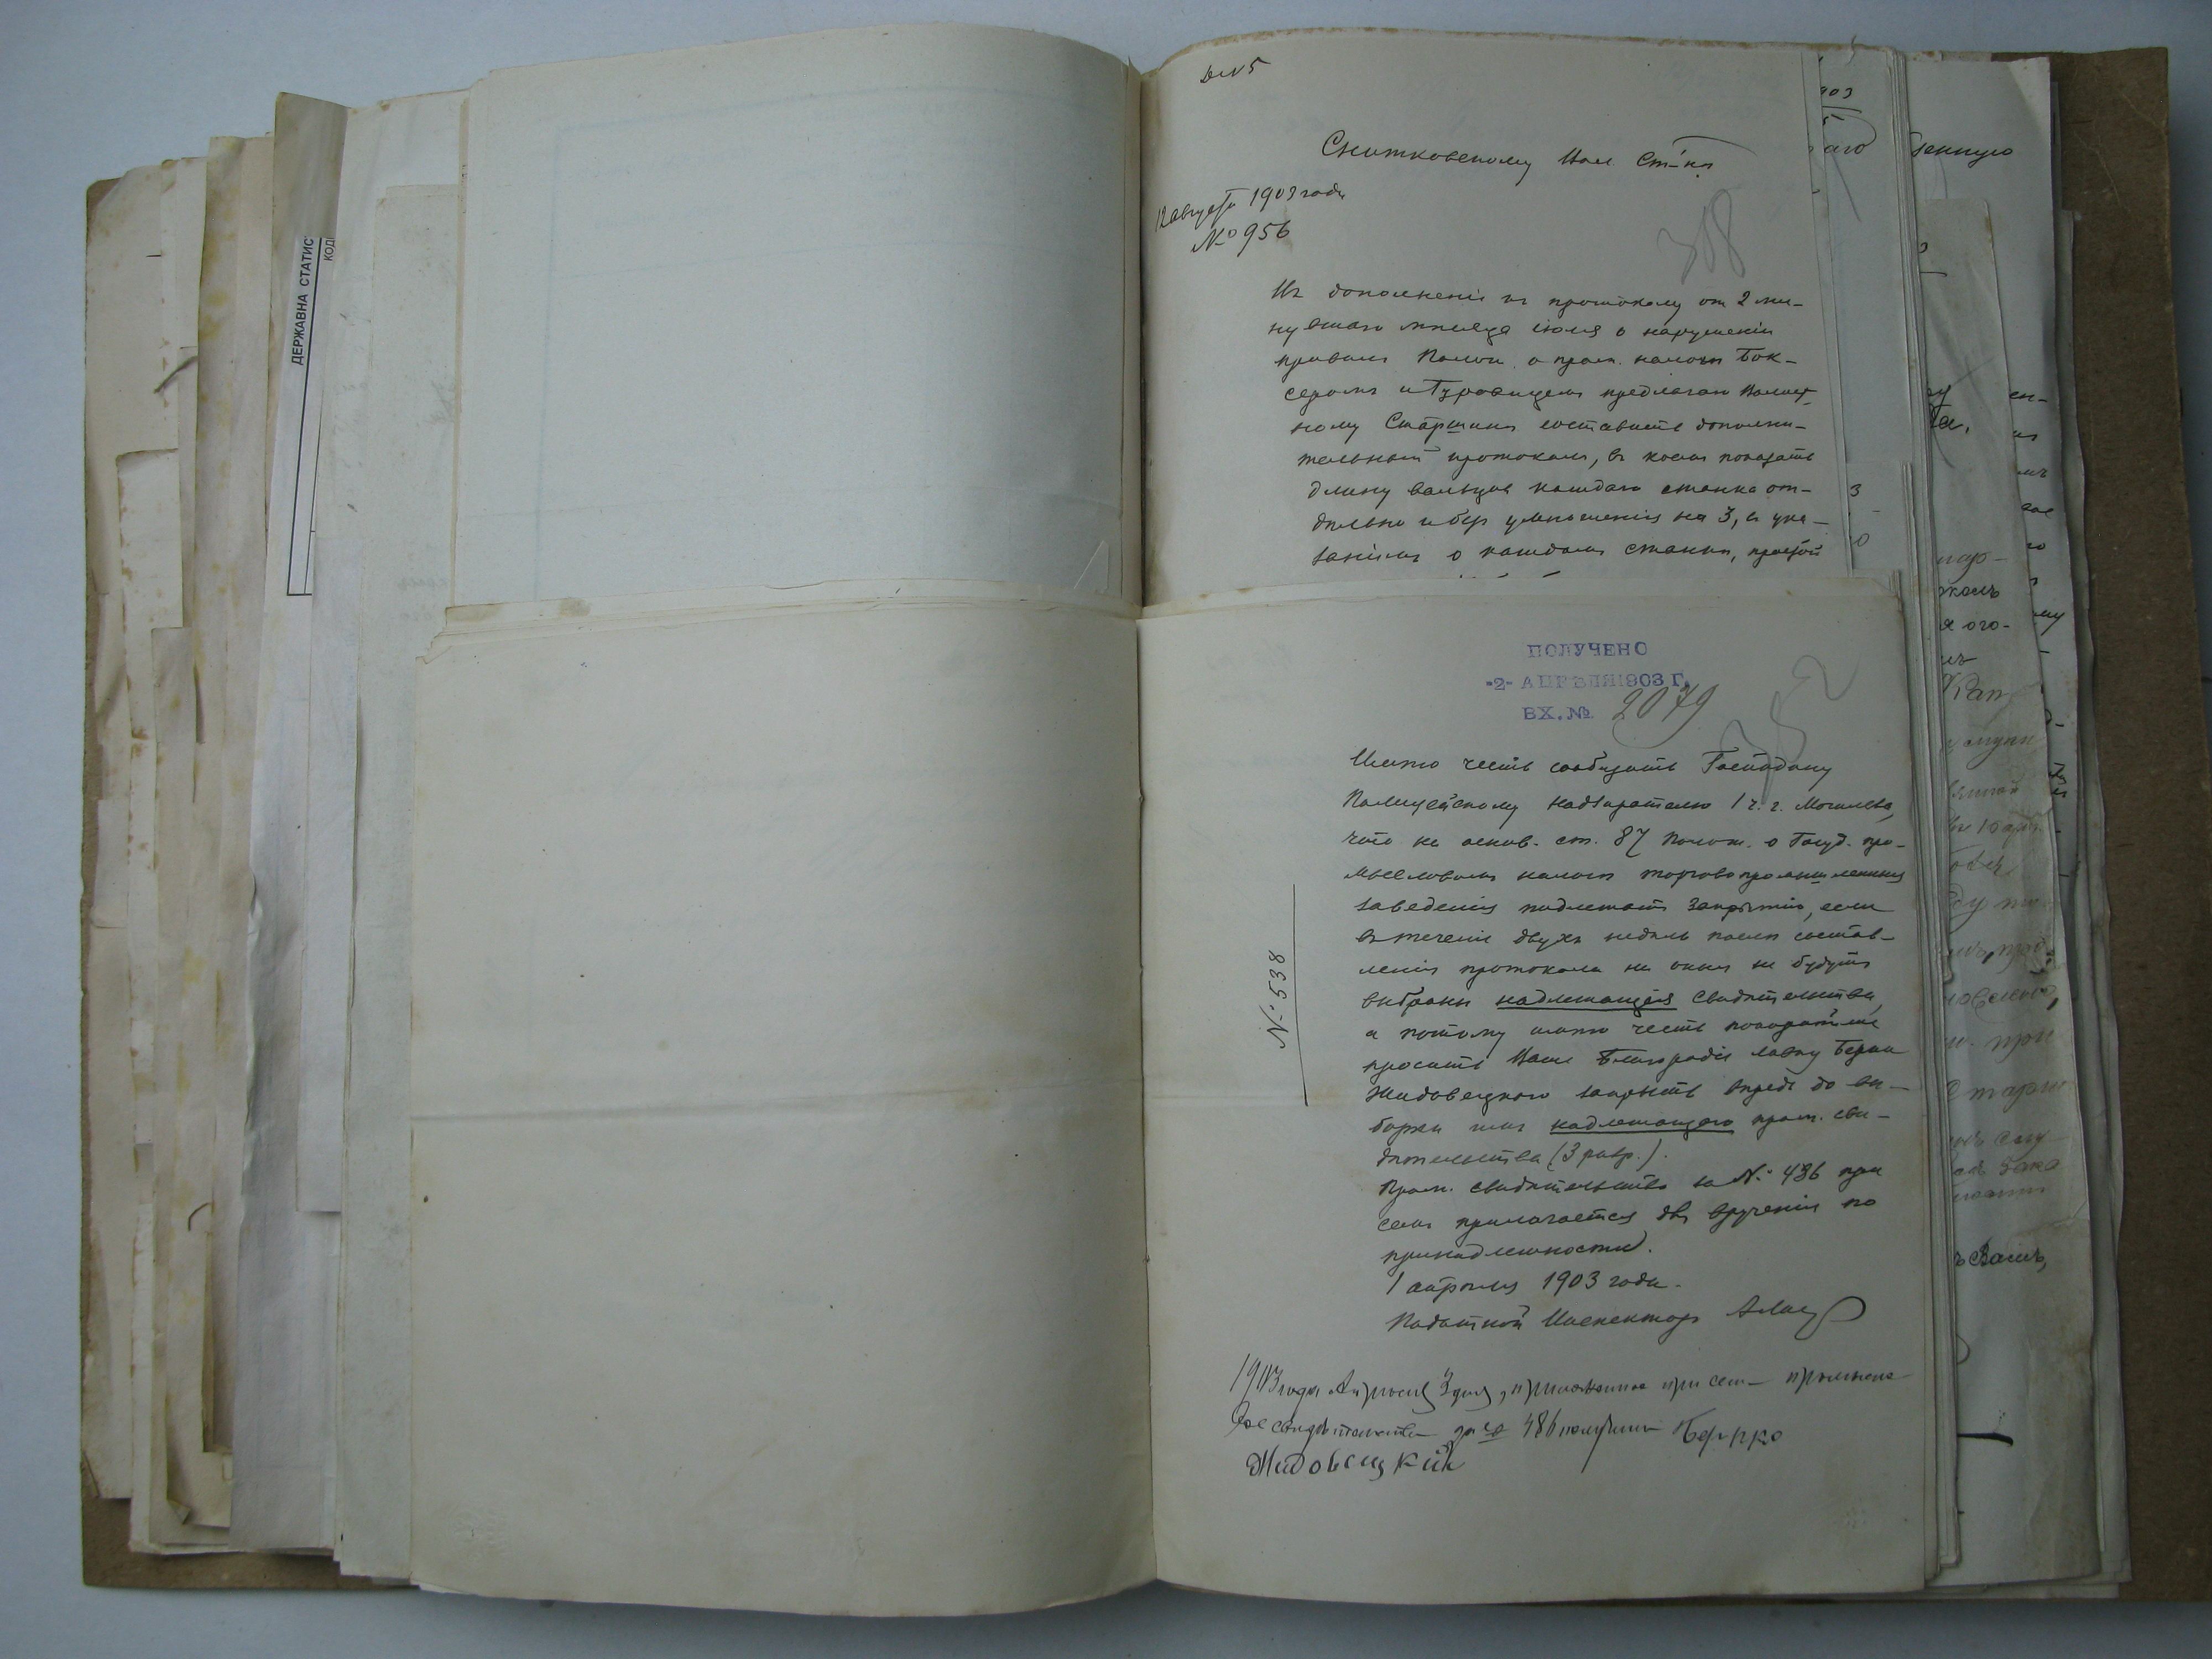 Снитковскому Вол. Ст-нѣ
12 августа 1903 года
№ 956
Въ дополненіе къ протоколу от 2 ми-
нувшаго мѣсяца іюля о нарушеніи
правилъ Полож. о пром. налогѣ Бок-
серомъ и Гуровицемъ предлагаю Волост-
ному Старшинѣ составить дополни-
тельный протоколъ, въ коемъ показать
длину вальцовъ каждаго станка от-
дѣльно и без умноженія на 3, съ ука-
заніемъ о каждомъ станкѣ, простой
ДЕРЖАВНА СТАТИС
КОД
ПОЛУЧЕНО
-2- АПРѢЛЯ 1903 Г.
ВХ. № 2079
№ 538
Имѣю честь сообщить Господину
Полицейскому Надзирателю 1 ч. г. Могилева,
что на основ. ст. 87 Полож. о Госуд. про-
мысловомъ налогѣ торговопромышленныя
заведенія подлежатъ закрытію, если
въ теченіе двухъ недѣль послѣ состав-
ленія протокола на оныя не будутъ
выбраны надлежащія свидѣтельства,
а потому имѣю честь покорнѣйше
просить Ваше Благородіе лавку Берки
Жидовецкаго закрыть впредь до вы-
борки имъ надлежащаго пром. сви-
дѣтельства (3 разр.).
Пром. свидѣтельство за № 486 при
семъ прилагается для врученія по
принадлежности.
1 апрѣля 1903 года.
Податной Инспекторъ
1903 года Апрѣля 3 дня, приложенное при семъ промысло
вое свидѣтельство за № 486 получилъ Берко
Жидовецкій